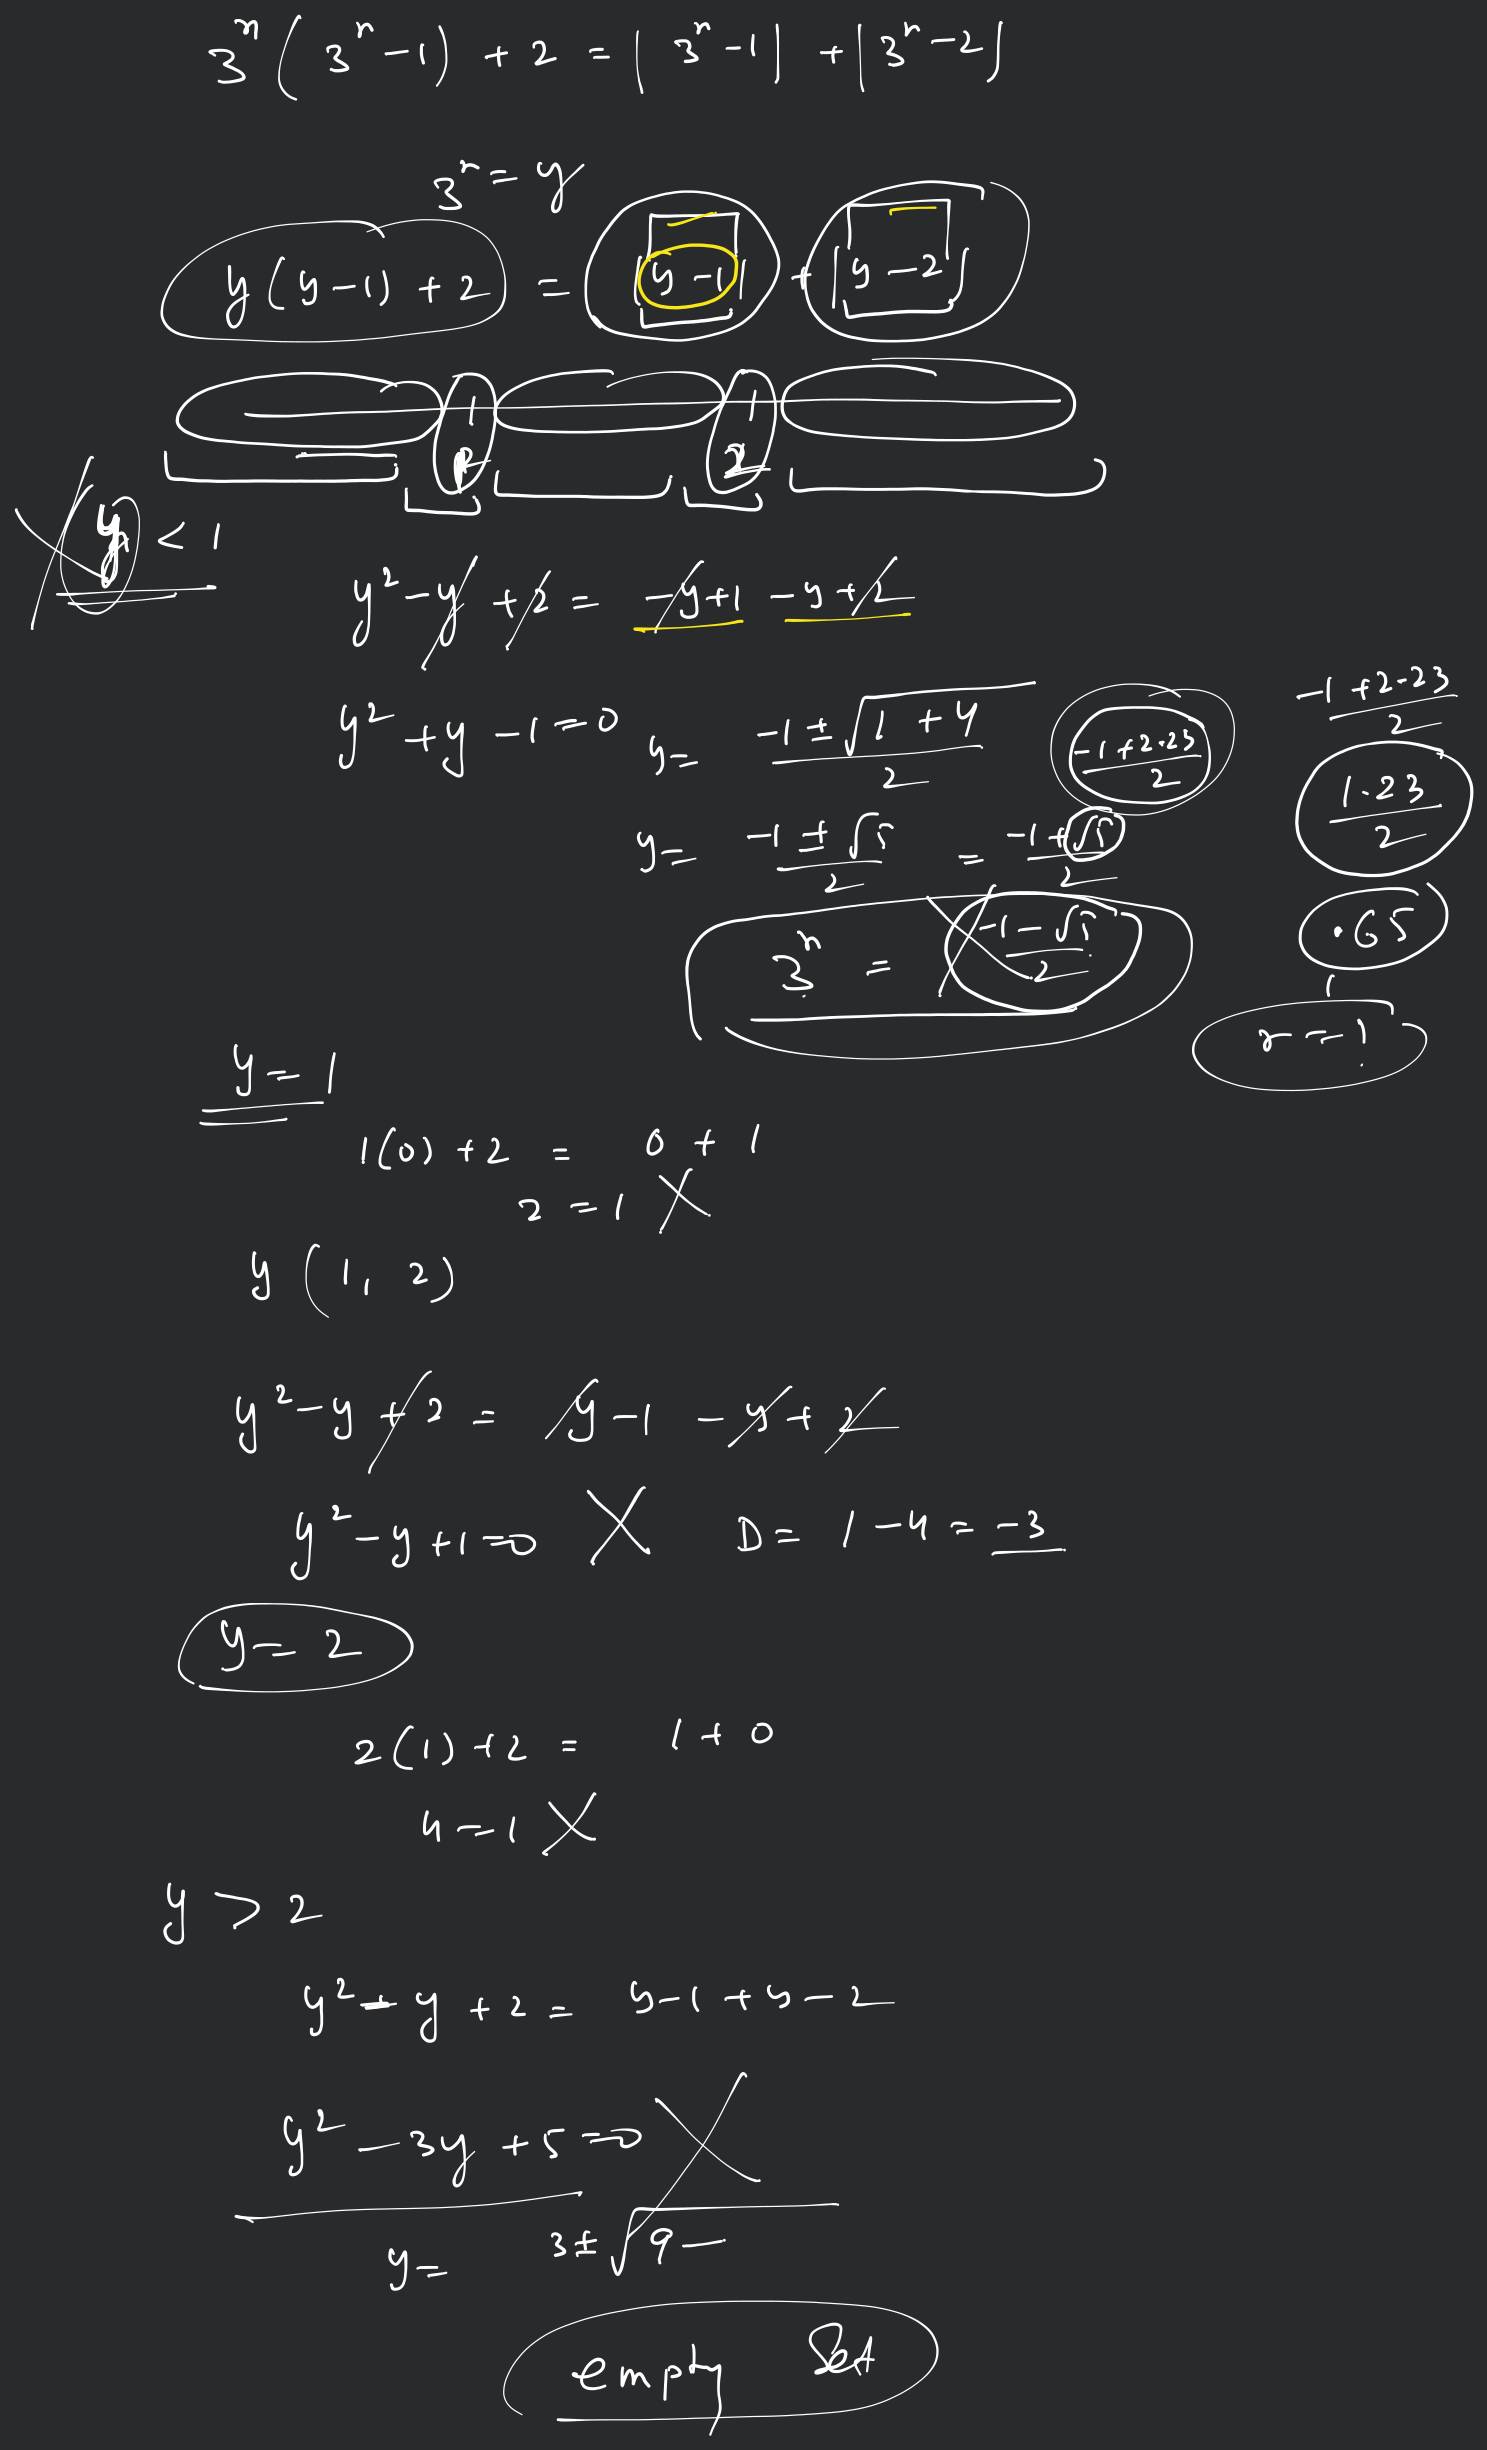 3^n (3^n - 1) + 2 = |3^n - 1| + |3^n - 2|
3^n = y
y(y-1) + 2 = |y-1| + |y-2|
1 2
y < 1
y² - y + 2 = -y+1 -y+2
y² + y - 1 = 0
y = (-1 ± √(1+4))/2
(-1+2.23)/2
(-1+2.23)/2
y = (-1 ± √5)/2 = (-1+√5)/2
1.23/2
3^n = (-1-√5)/2
.65
n = 1
y = 1
1(0) + 2 = 0 + 1
2 = 1 X
y (1, 2)
y² - y + 2 = y - 1 - y + 2
y² - y + 1 = 0 X D = 1 - 4 = -3
y = 2
2(1) + 2 = 1 + 0
4 = 1 X
y > 2
y² - y + 2 = y - 1 + y - 2
y² - 3y + 5 = 0 X
y = 3 ± √9 -
empty Set